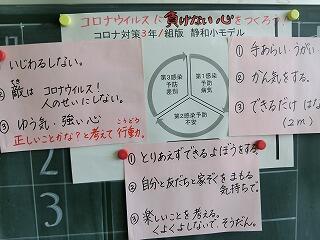 コロナウイルスに負けない心をつくろう
コロナ対策3年1組版 静和小モデル
いじわるしない。
② 敵は コロナウイルス!
てき
人のせいにしない。
③ ゆう気・強い心
正しいことかな?と考えて行動。
こうどう
第3感染
予防
差別
第1感染
予防
病気
第2感染予防
不安
① 手あらい・うがい
② かん気をする。
③ できるだけ はな
(2m)
① とりあえずできるよぼうをする。
② 自分と友だちと家ぞくをまもる
気持ちで。
③ 楽しいことを考える。
くよくよしないで、そうだん。
2
3